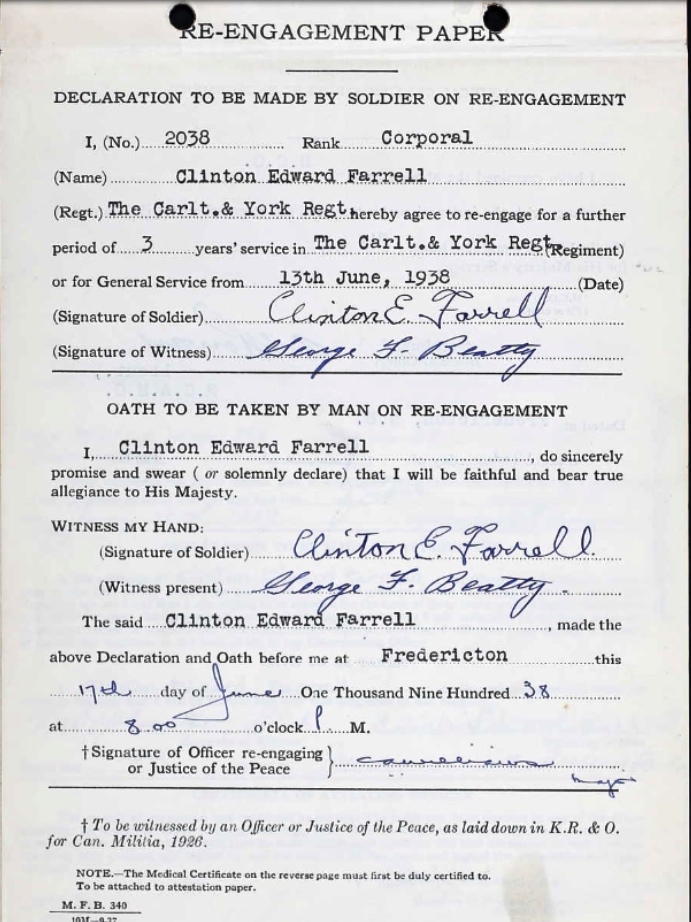 RE-ENGAGEMENT PAPER
DECLARATION TO BE MADE BY SOLDIER ON RE-ENGAGEMENT
I, (No.) 2038 Rank Corporal
(Name) Clinton Edward Farrell
(Regt.) The Carlt.& York Regt. hereby agree to re-engage for a further
period of 3 years' service in The Carlt.& York Regt. (Regiment)
or for General Service from 13th June, 1938 (Date)
(Signature of Soldier) Clinton E. Farrell
(Signature of Witness) George F. Beatty
OATH TO BE TAKEN BY MAN ON RE-ENGAGEMENT
I, Clinton Edward Farrell, do sincerely
promise and swear ( or solemnly declare) that I will be faithful and bear true
allegiance to His Majesty.
WITNESS MY HAND:
(Signature of Soldier) Clinton E. Farrell.
(Witness present) George F. Beatty.
The said Clinton Edward Farrell, made the
above Declaration and Oath before me at Fredericton this
17th day of June One Thousand Nine Hundred 38
at 8.00 o'clock P M.
† Signature of Officer re-engaging
or Justice of the Peace
Major
† To be witnessed by an Officer or Justice of the Peace, as laid down in K.R. & O.
for Can. Militia, 1926.
NOTE.—The Medical Certificate on the reverse page must first be duly certified to.
To be attached to attestation paper.
M. F. B. 340